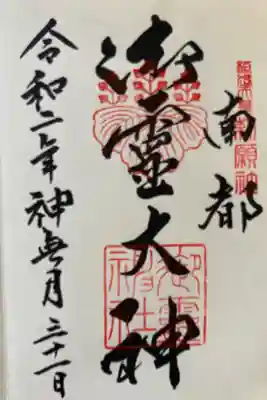 南都
御靈大神
御靈神社
令和二年神無月三十一日